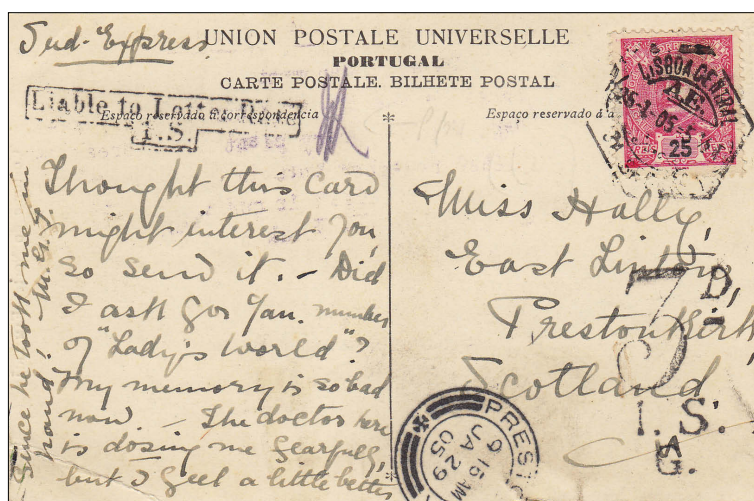 Sud-Express
UNION POSTALE UNIVERSELLE
PORTUGAL
CARTE POSTALE. BILHETE POSTAL
Liable to Letter Rate
I.S.
Espaço reservado á correspondencia
Espaço reservado á
LISBOA CENTRAL
A.E.
25
Thought this card
might interest you,
so send it. – Did
I ask for Jan. number
of "Lady's World"?
My memory is so bad
now – The doctor here
is dosing me fearfully,
but I feel a little better
since he took me in
hand!
Miss Holly,
East Linton,
Prestonkirk,
Scotland
5 D,
I. S.
G.
PREST
9 15 AM
JA 29
05